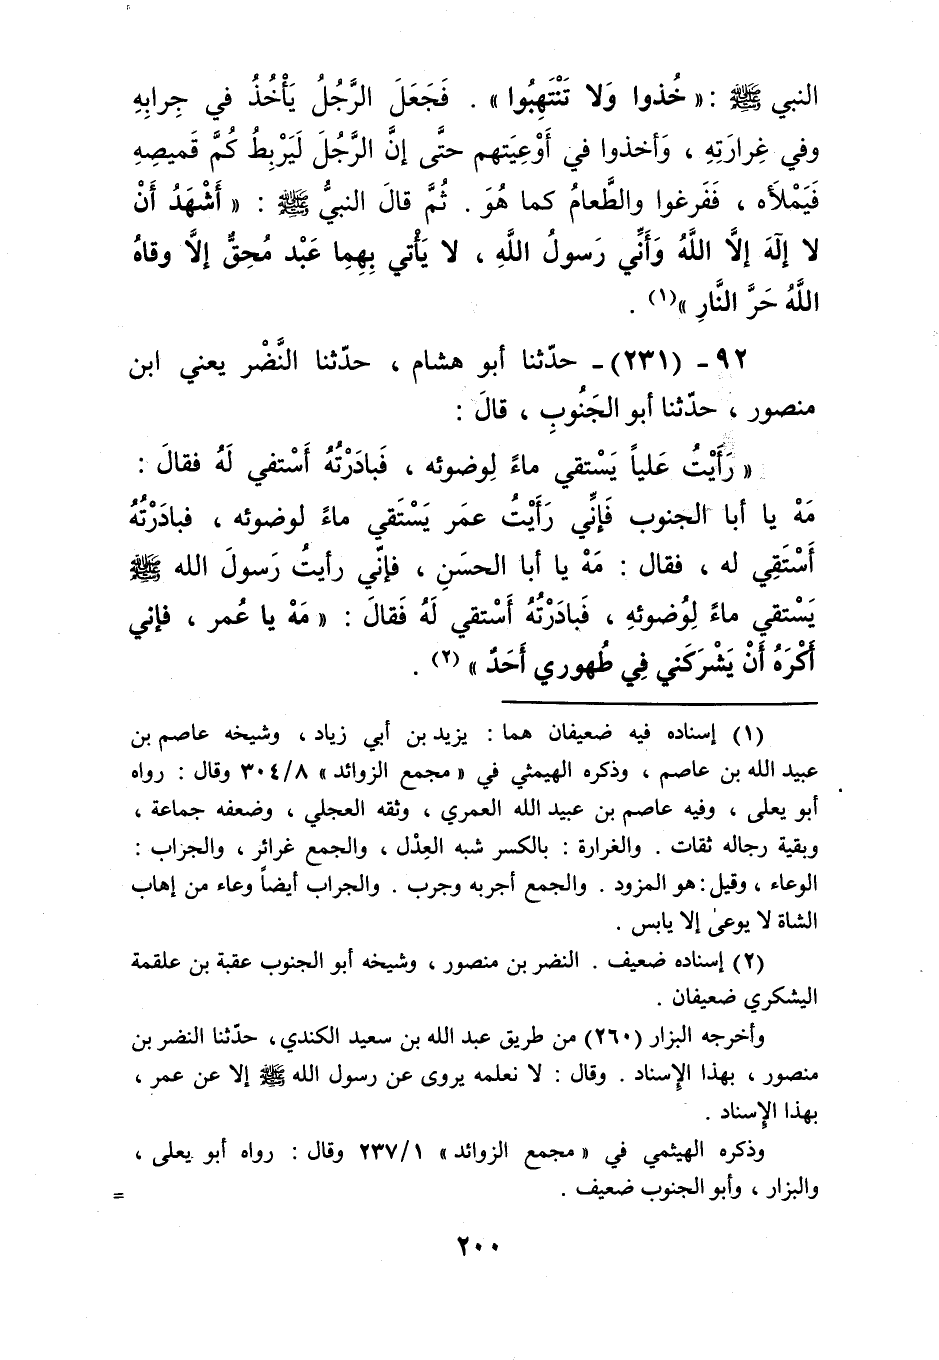 النبي ﷺ : « خُذوا وَلا تَنْتَهِبُوا » . فَجَعَلَ الرَّجُلُ يَأْخُذُ في جِرابِهِ
وفي غِرارَتِهِ ، وَأخذوا في أَوْعِيَتهم حتَّى إنَّ الرَّجُلَ لَيَرْبِطُ كُمَّ قَميصِهِ
فَيَمْلأه ، فَفَرغوا والطَّعامُ كما هُوَ . ثُمَّ قالَ النبيُّ ﷺ : « أَشْهَدُ أَنْ
لا إلَهَ إلَّا اللَّهُ وَأَنِّي رَسولُ اللَّهِ ، لا يَأْتي بِهِما عَبْد مُحِقٌّ إلَّا وقاهُ
اللَّهُ حَرَّ النَّارِ »(١) .
٩٢ ـ (٢٣١) ـ حدّثنا أبو هشام ، حدّثنا النَّضْر يعني ابن
منصور ، حدّثنا أبو الجَنُوبِ ، قالَ :
« رَأَيْتُ عَلياً يَسْتقي ماءً لِوضوئه ، فَبادَرْتُهُ أَسْتفي لَهُ فقالَ :
مَهْ يا أبا الجنوب فَإنِّي رَأَيْتُ عمَر يَسْتَقي ماءً لوضوئه ، فبادَرْتُهُ
أَسْتَقِي له ، فقال : مَهْ يا أبا الحسَنِ ، فإنّي رأيتُ رَسولَ الله ﷺ
يَسْتقي ماءً لِوُضوئهِ ، فَبادَرْتُهُ أَسْتقي لَهُ فَقالَ : « مَهْ يا عُمر ، فإني
أَكْرَهُ أَنْ يَشْرَكَني فِي طُهوري أَحَدٌ » (٢) .
(١) إسناده فيه ضعيفان هما : يزيد بن أبي زياد ، وشيخه عاصم بن
عبيد الله بن عاصم ، وذكره الهيمثي في « مجمع الزوائد » ٣٠٤/٨ وقال : رواه
أبو يعلى ، وفيه عاصم بن عبيد الله العمري ، وثقه العجلي ، وضعفه جماعة ،
وبقية رجاله ثقات . والغرارة : بالكسر شبه العِدْل ، والجمع غرائر ، والجزاب :
الوعاء ، وقيل : هو المزود . والجمع أجربه وجرب . والجراب أيضاً وعاء من إهاب
الشاة لا يوعى إلا يابس .
(٢) إسناده ضعيف . النضر بن منصور ، وشيخه أبو الجنوب عقبة بن علقمة
اليشكري ضعيفان .
وأخرجه البزار (٢٦٠) من طريق عبد الله بن سعيد الكندي، حدّثنا النضر بن
منصور ، بهذا الإسناد . وقال : لا نعلمه يروى عن رسول الله ﷺ إلا عن عمر ،
بهذا الإسناد .
وذكره الهيثمي في « مجمع الزوائد » ٢٣٧/١ وقال : رواه أبو يعلى ،
والبزار ، وأبو الجنوب ضعيف .
=
٢٠٠